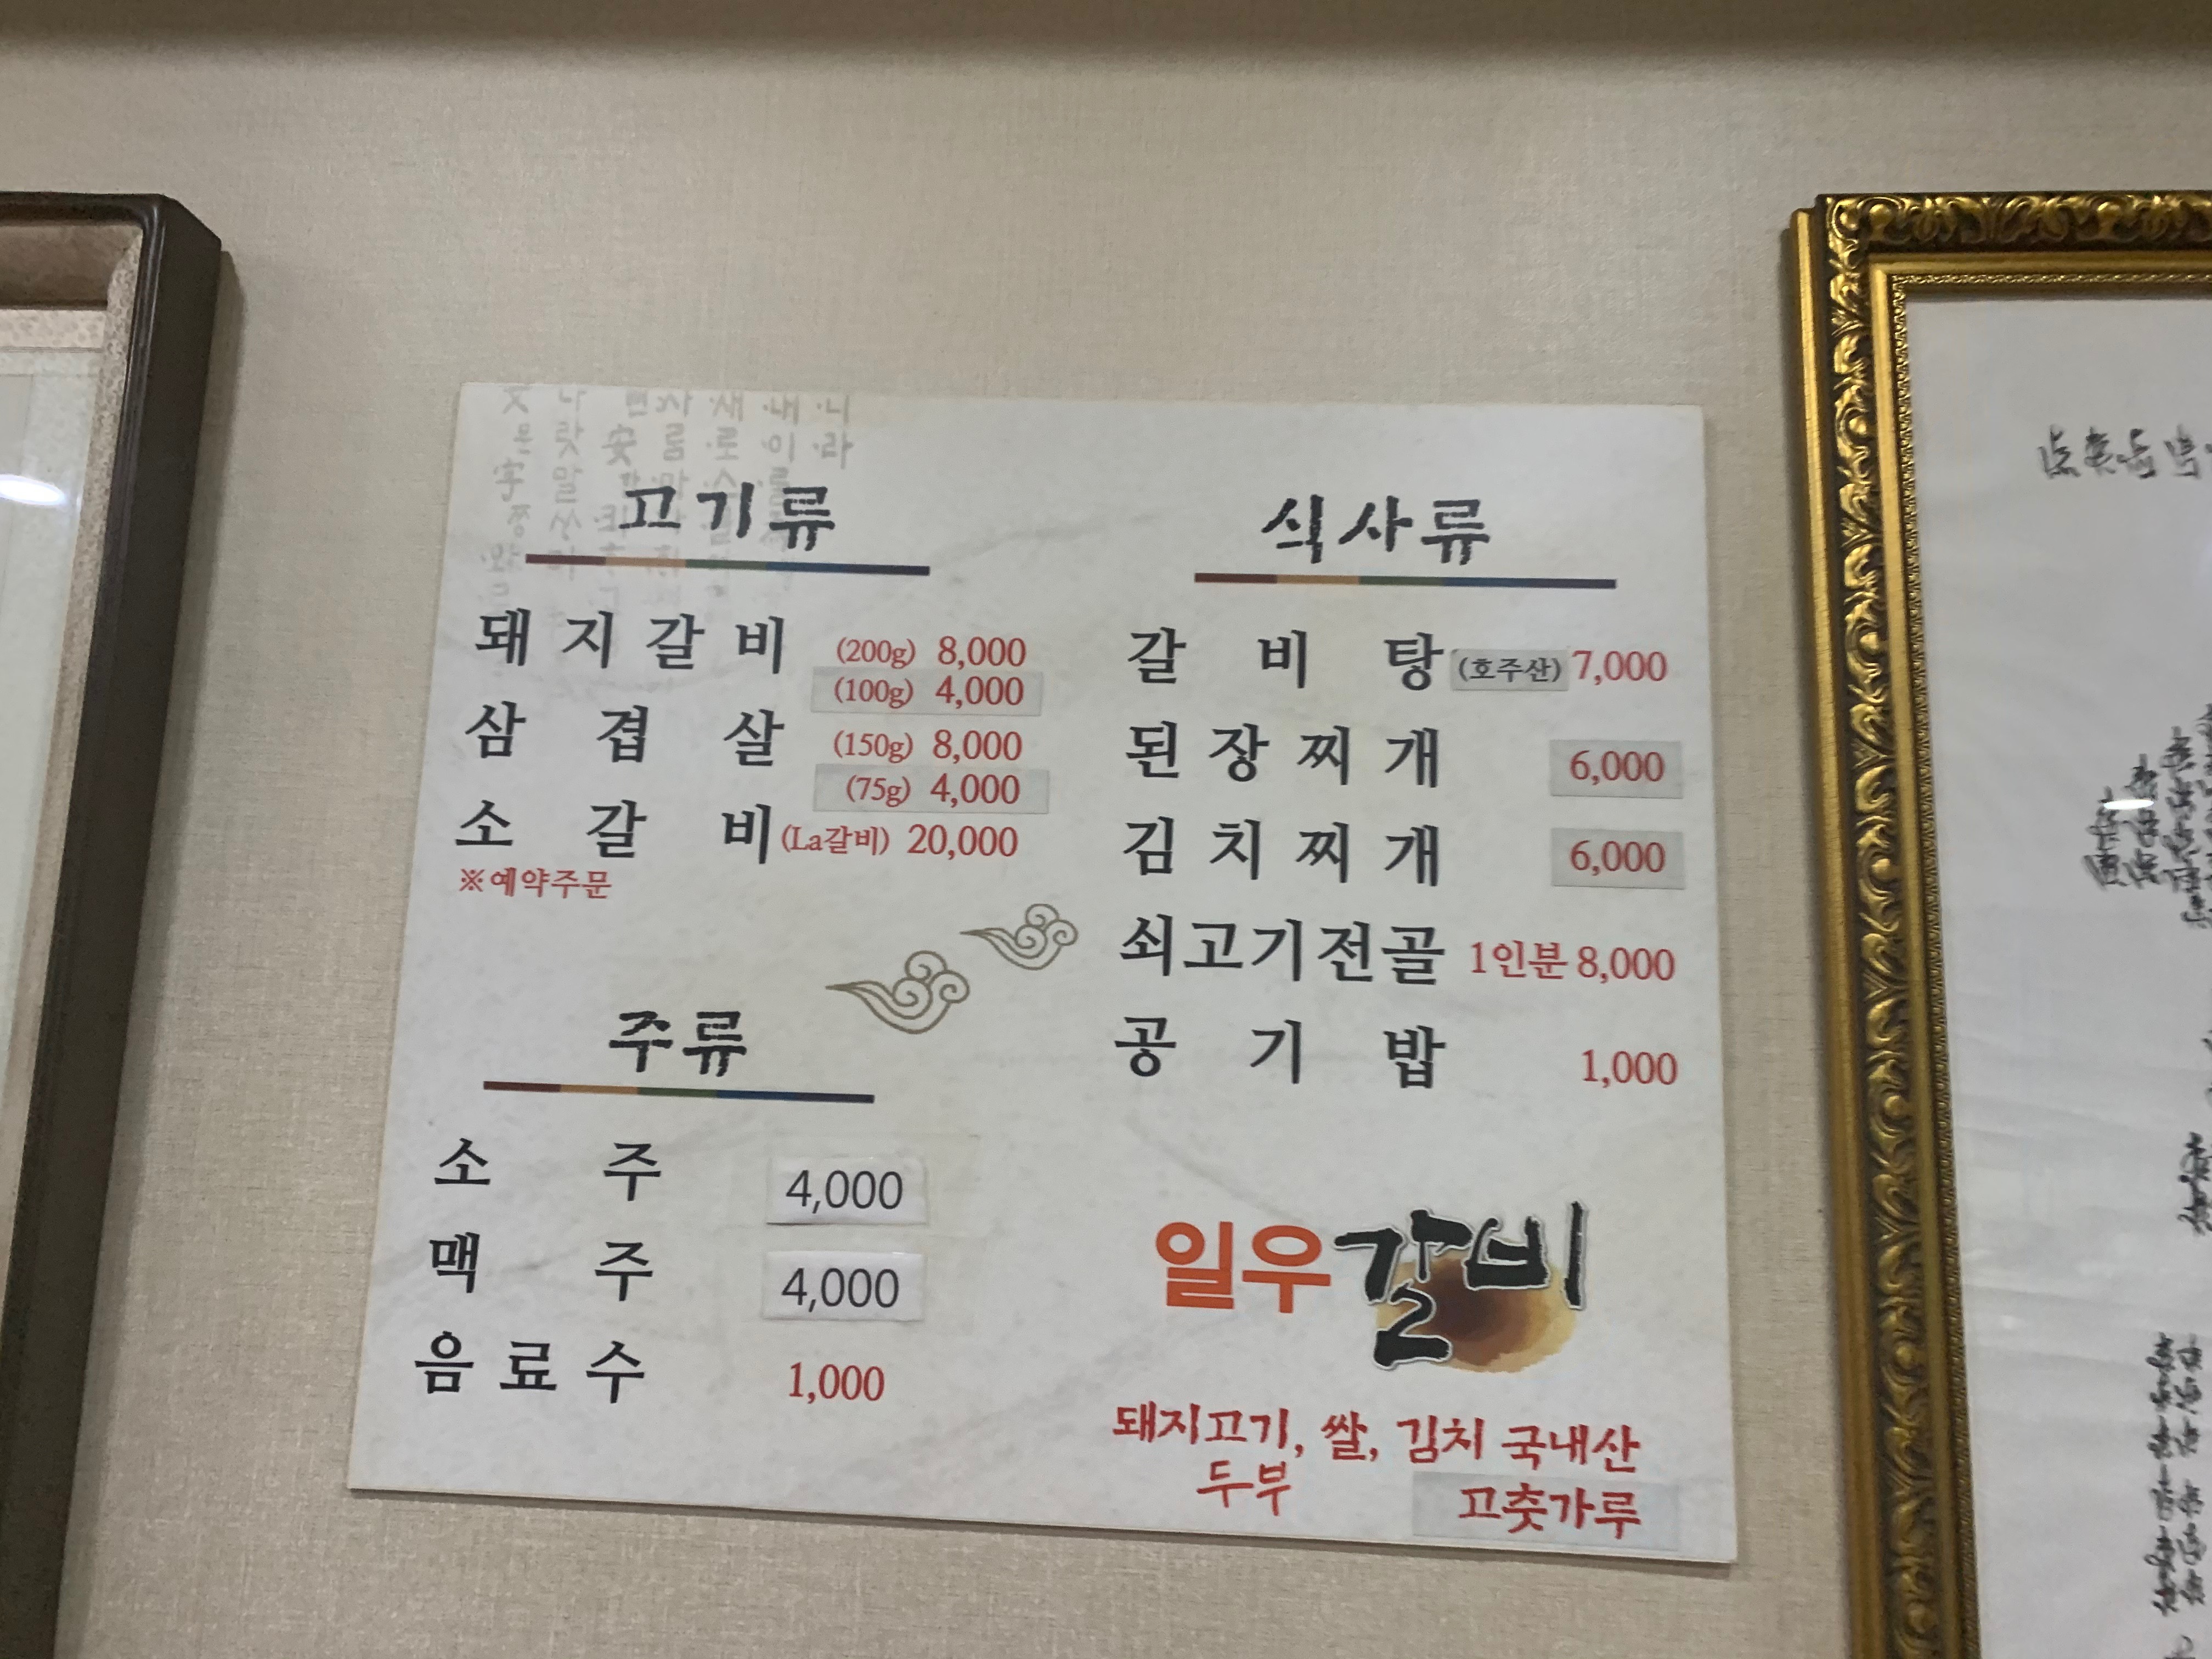 고기류
돼지갈비 (200g) 8,000
(100g) 4,000
삼겹살 (150g) 8,000
(75g) 4,000
소갈비 (La갈비) 20,000
※예약주문
주류
소주 4,000
맥주 4,000
음료수 1,000
식사류
갈비탕 (호주산) 7,000
된장찌개 6,000
김치찌개 6,000
쇠고기전골 1인분 8,000
공기밥 1,000
일우갈비
돼지고기, 쌀, 김치 국내산
두부 고춧가루